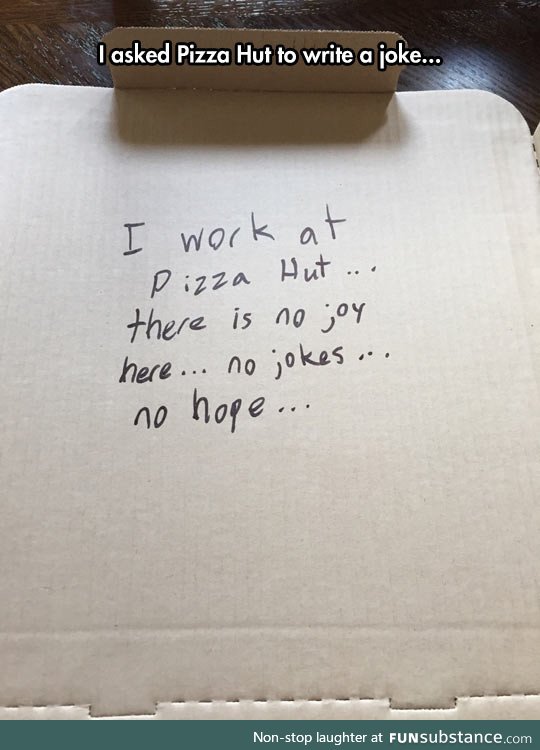 I asked Pizza Hut to write a joke...
I work at
Pizza Hut...
there is no joy
here... no jokes...
no hope...
Non-stop laughter at FUNsubstance.com